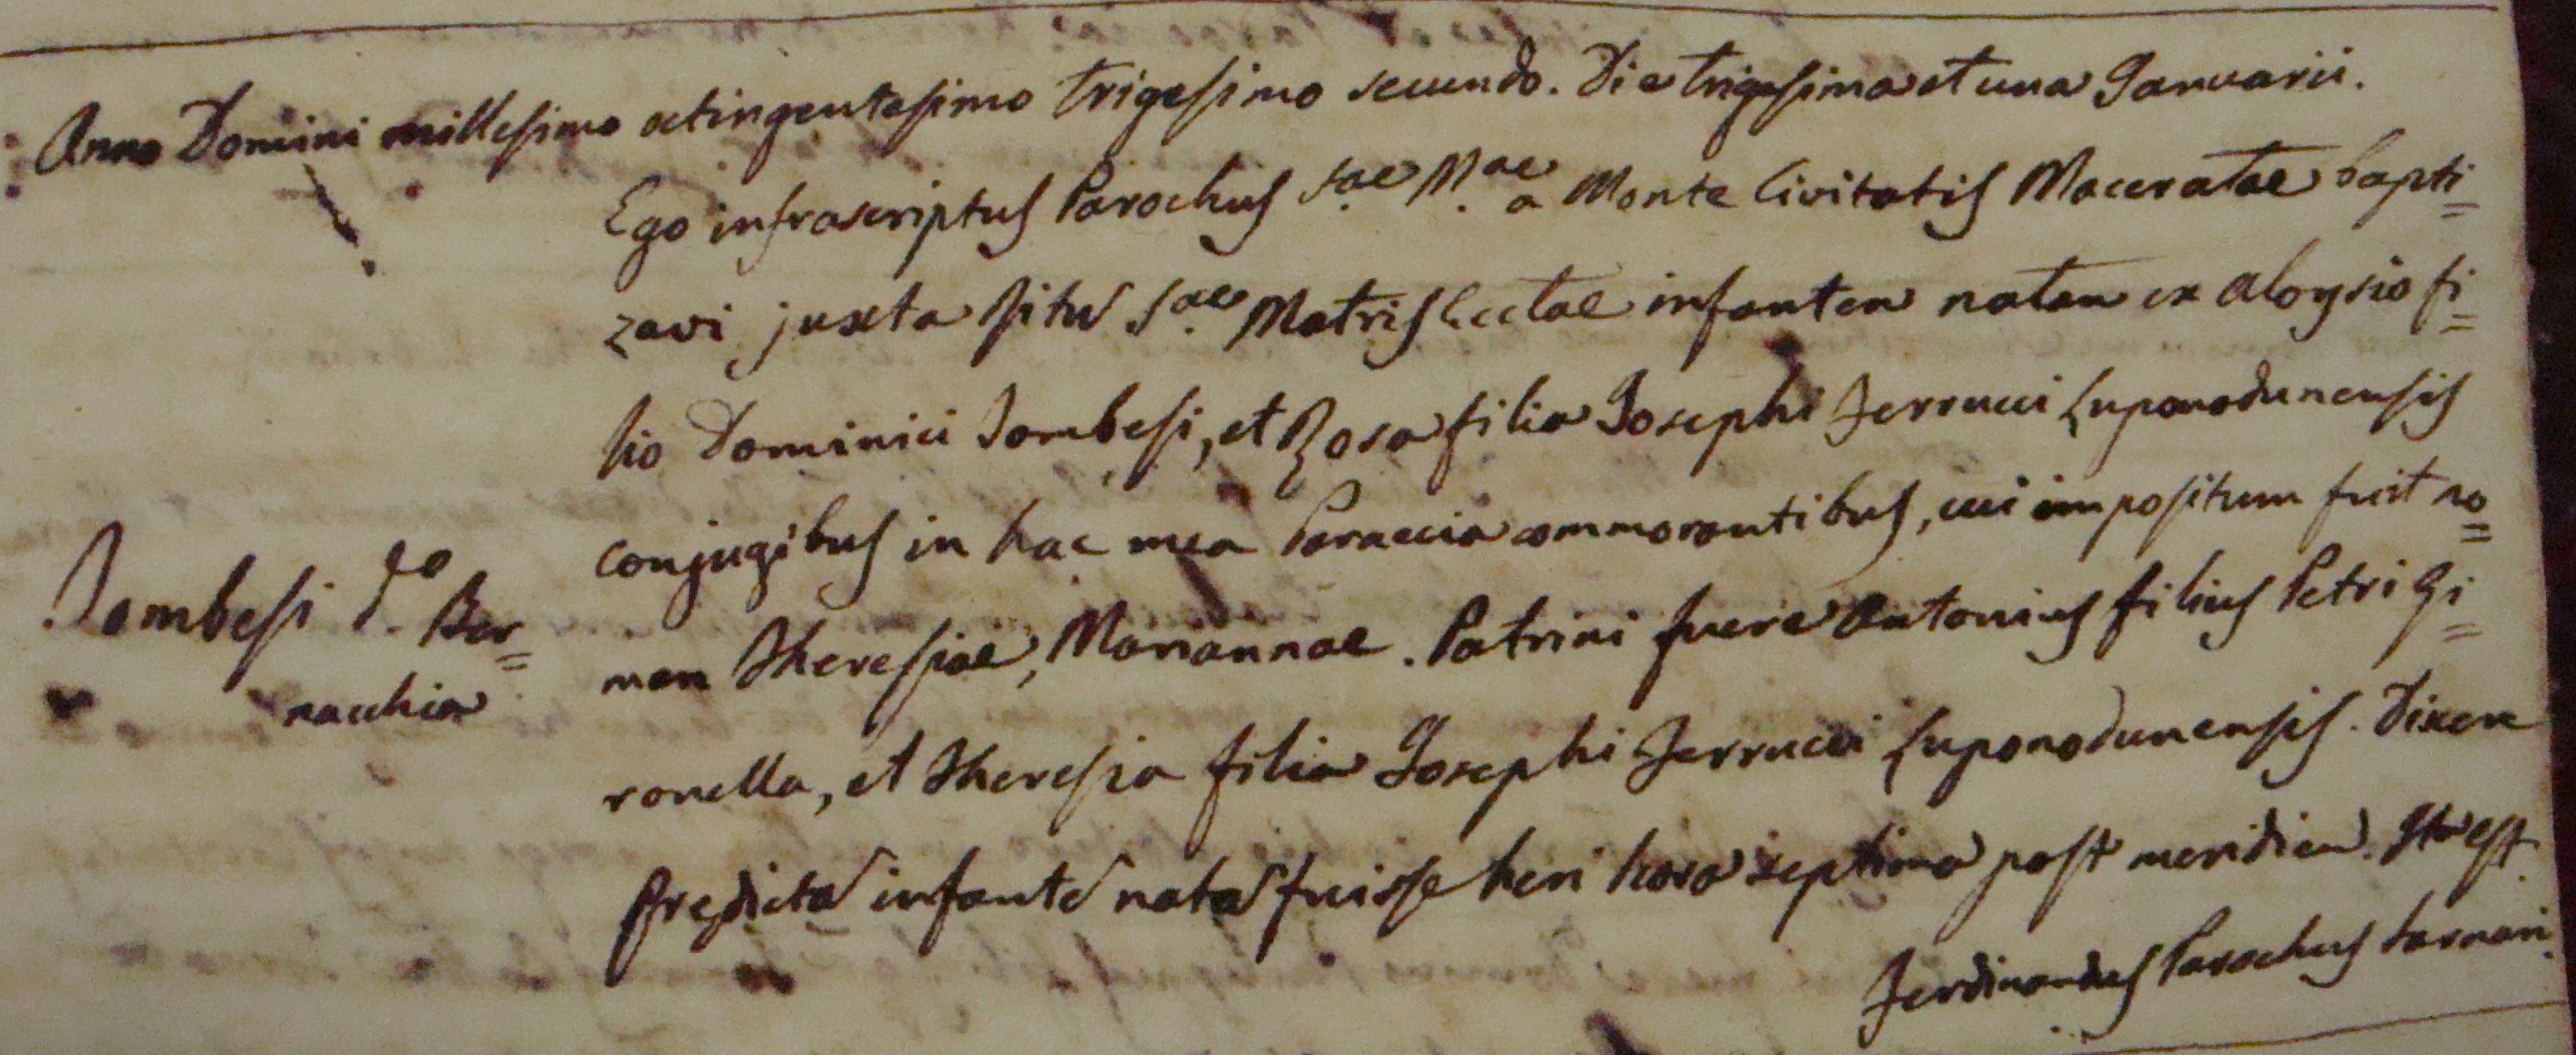 Anno Domini millesimo octingentesimo trigesimo secundo. Die trigesima et una Januarii.
Ego infrascriptus Parochus S.ae M.ae a Monte Civitatis Maceratae bapti=
zavi juxta Ritu S.ae Matris Ecclae infantem natam ex Aloysio fi=
lio Dominici Tombesi, et Rosa filia Josephi Ferrucci
conjugibus in hac mea Paraecia commorantibus, cui impositum fuit no=
men Theresiae, Mariannae. Patrini fuere Antonius filius Petri Gi=
Tombesi d.o Ber=
nacchia
ronella, et Theresia filia Josephi Ferrucci. Dixere
predicta infante nata fuisse heri hora septima post meridiem. Ita est.
Ferdinandus Parochus